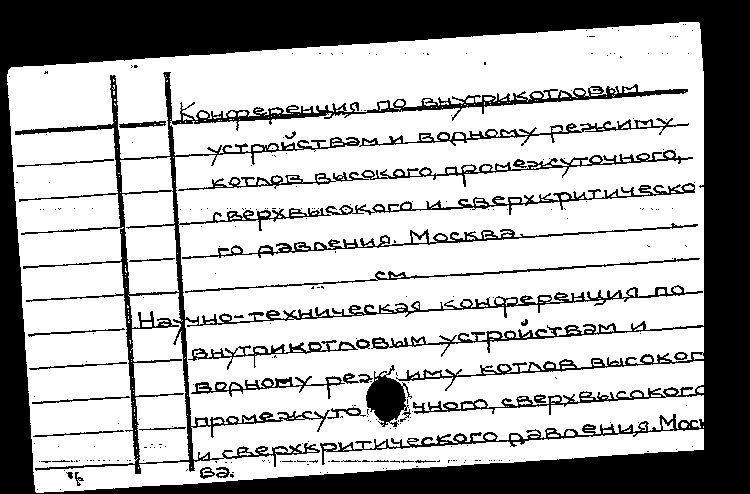 Конференция по внутрикотловым
устройствам и водному режиму
котлов высокого, промежуточного,
сверхвысокого и сверхкритическо-
го давления. Москва.
см.
Научно-техническая конференция по
внутрикотловым устройствам и
водному режиму котлов высоког
промежуто чного, сверхвысокого
и сверхкритического давления. Моск
ва.